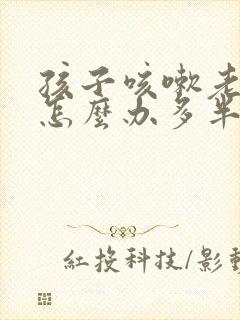 孩子咳嗽老
怎麼办多半
紅投科技/影動